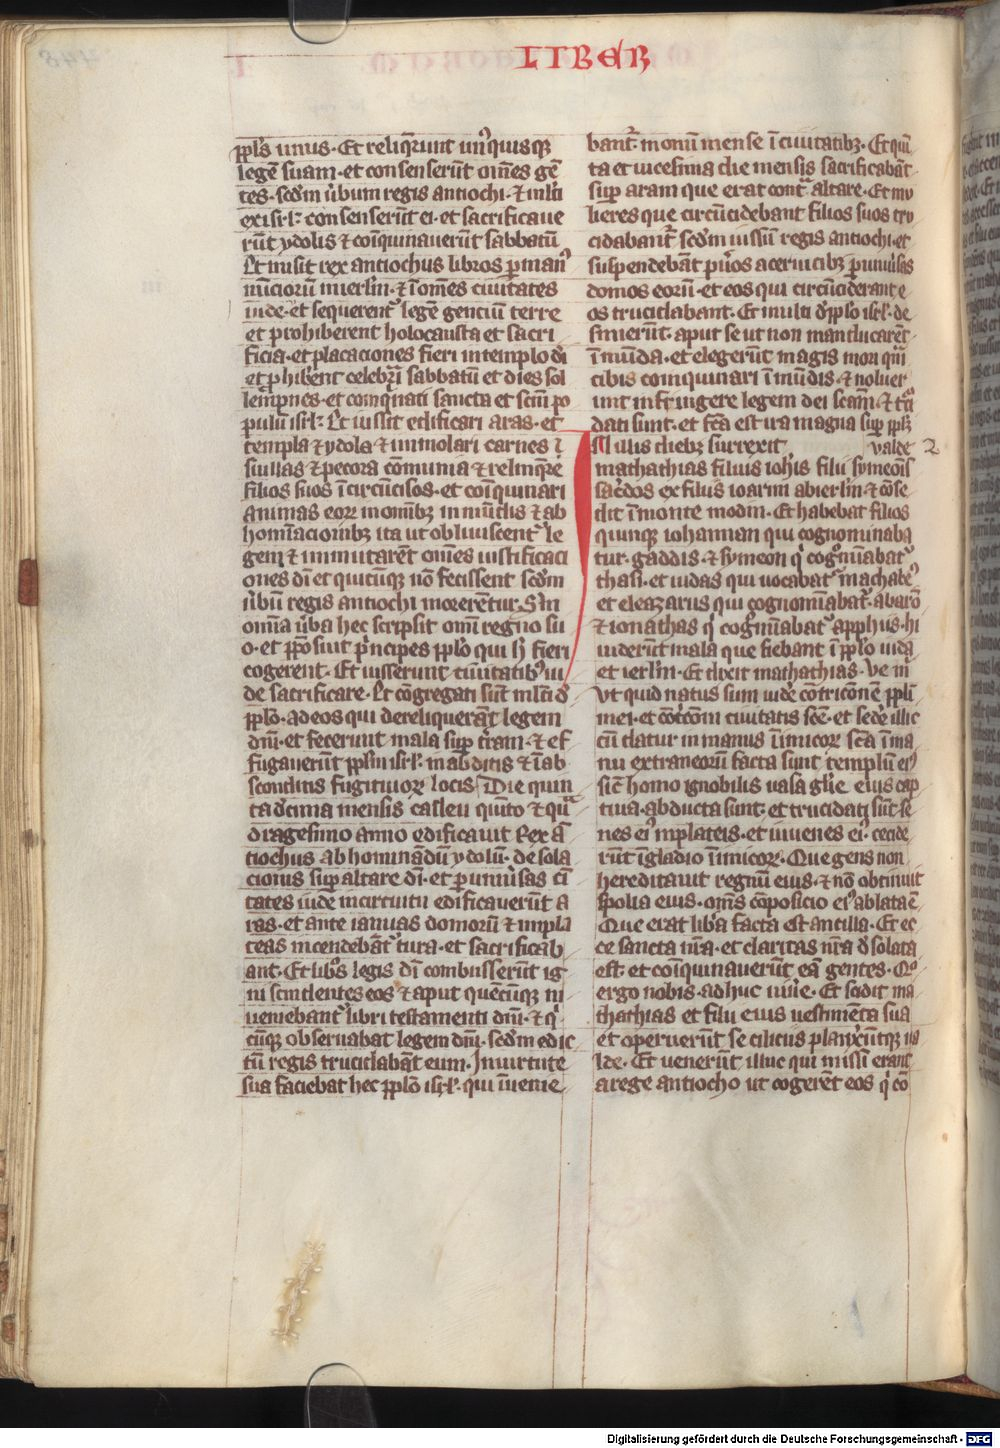 LIBER
ppl's unus · Et reliq̄runt un9quisq3
legē suam · et consenserūt om̄es gē
tes · scdm u̇bum regis antiochi · ⁊ m̄lti
ex isrl' consenserūt ei · et sacrificaue
rūt ydolis ⁊ coīquinauerūt sabbatū
Et misit rex antiochus libros p man9
nūciorū in ierl'm · ⁊ ī om̄es ciuitates
iude · et sequerent' legē genciū terre
et prohiberent holocausta et sacri
ficia · et placaciones fieri in templo dī
et phibent celeb̄ri sabbatū et dies sol
lēmpnes · et coinq̄nari sancta et sc̄m po
pulum isrl' · Et iussit edificari aras · et
templa ⁊ ydola ⁊ immolari carnes
suillas ⁊ pecora cōmunia ⁊ relinq̄re
filios suos ī circūcisos · et coīquinari
animas eor̄ in om̄ib3 in mūdis ⁊ ab
hom̄iacionib3 ita ut obliuiscent' le
gem ⁊ immutarēt om̄es iustificaci
ones dī et quicūq3 nō fecissent scdm
u̇bū regis antiochi morerētur S'm
om̄ia u̇ba hec scripsit om̄i regno su
o · et pposuit p̄ncipes pplo qui h' fieri
cogerent · Et iusserunt ciuitatib9 iu
de sacrificare · Et cōgregati sūt m̄lti d'
pplo · ad eos qui dereliquerāt legem
dn̄i · et fecerunt mala sup t̄ram · ⁊ ef
fugauerūt pplm isrl' · in abditis ⁊ ī ab
sconditis fugitiuor̄ locis Die quin
ta decima mensis casleu quīto ⁊ qu
dragesimo anno edificauit Rex ā
tiochus abhominādū ydolū · desola
cionis sup altare dī · et p uniu̇sas ci
tates iude in circuitu edificauerūt a
ras · et ante ianuas domorū ⁊ in pla
teas incendebāt tura · et sacrificab
ant · Et lib'os legis dī combusserūt ig
ni scindentes eos ⁊ aput quēcūq3 in
ueniebant' libri testamenti dn̄i · ⁊ q'
cūq3 obseruabat legem dn̄i · scdm edic
tū regis trucidabāt eum · In uirtute
sua faciebat hec pplo isrl' · qui īuenie
bant' · in om̄i mense ī ciuitatib3 · Et qui
ta et uicesima die mensis sacrificabāt
sup aram que erat cont̄ altare · Et mu
lieres que circūcidebant filios suos tru
cidabant' scdm iussū regis antiochi · et
suspendebāt pu̇os a ceruicib3 p uniu̇sas
domos eorū · et eos qui circūciderant e
os trucidabant · Et multi d' pplo isrl' · de
finierūt · aput se ut non manducarēt
īmūda · et elegerūt magis mori quā
cibis coinquinari īmūdis · ⁊ noluer
unt infringere legem dei sc̄am · ⁊ t̄u
dati sunt · et fc̄a est ira magna sup pplm
In illis dieb3 surrexit valde 2
mathathias filius ioh'is filii symeōīs
sac̄dos ex filiis ioarim ab ierl'm · ⁊ cōse
dit ī monte modin · Et habebat filios
quinq3 iohannan qui cognominaba
tur · gaddis · ⁊ symeon q' cognīabat'
thasi · et iudas qui uocabat' machabe9
et eleazarus qui cognomīabat' · abarō
⁊ ionathas q' cognīabat' apphus · hi
uiderunt mala que fiebant ī pplo iuda
et ierl'm · Et dixit mathathias · Ve m'
Vt quid natus sum uide cōtricōnē ppli
mei · et cōt̄cōm ciuitatis sc̄e · et sede illic
cū datur in manus īimicor̄ sc̄a ī ma
nu extraneorū facta sunt templū ei9
sic̄ homo ignobilis uasa gl'ie eius cap
tiua abducta sunt · et trucidati sūt se
nes ei9 in plateis · et iuuenes ei9 cecide
rūt ī gladio īimicor̄ · Que gens non
hereditauit regnū eius · ⁊ nō obtinuit
spolia eius · om̄s cōposicio ei9 ablata ē
Que erat lib̄a facta est ancilla · Et ec
ce sancta nr̄a · et claritas nr̄a d'solata
est · et coīquinauerūt eā gentes · Qo
ergo nobis · adhuc uiu̇e · Et scidit ma
thathias et filii eius uestimēta sua
et operuerūt se ciliciis planxerūtq3 ua
lde · Et uenerūt illuc qui missi erant
a rege antiocho ut cogerēt eos q' cō
Digitalisierung gefördert durch die Deutsche Forschungsgemeinschaft - DFG